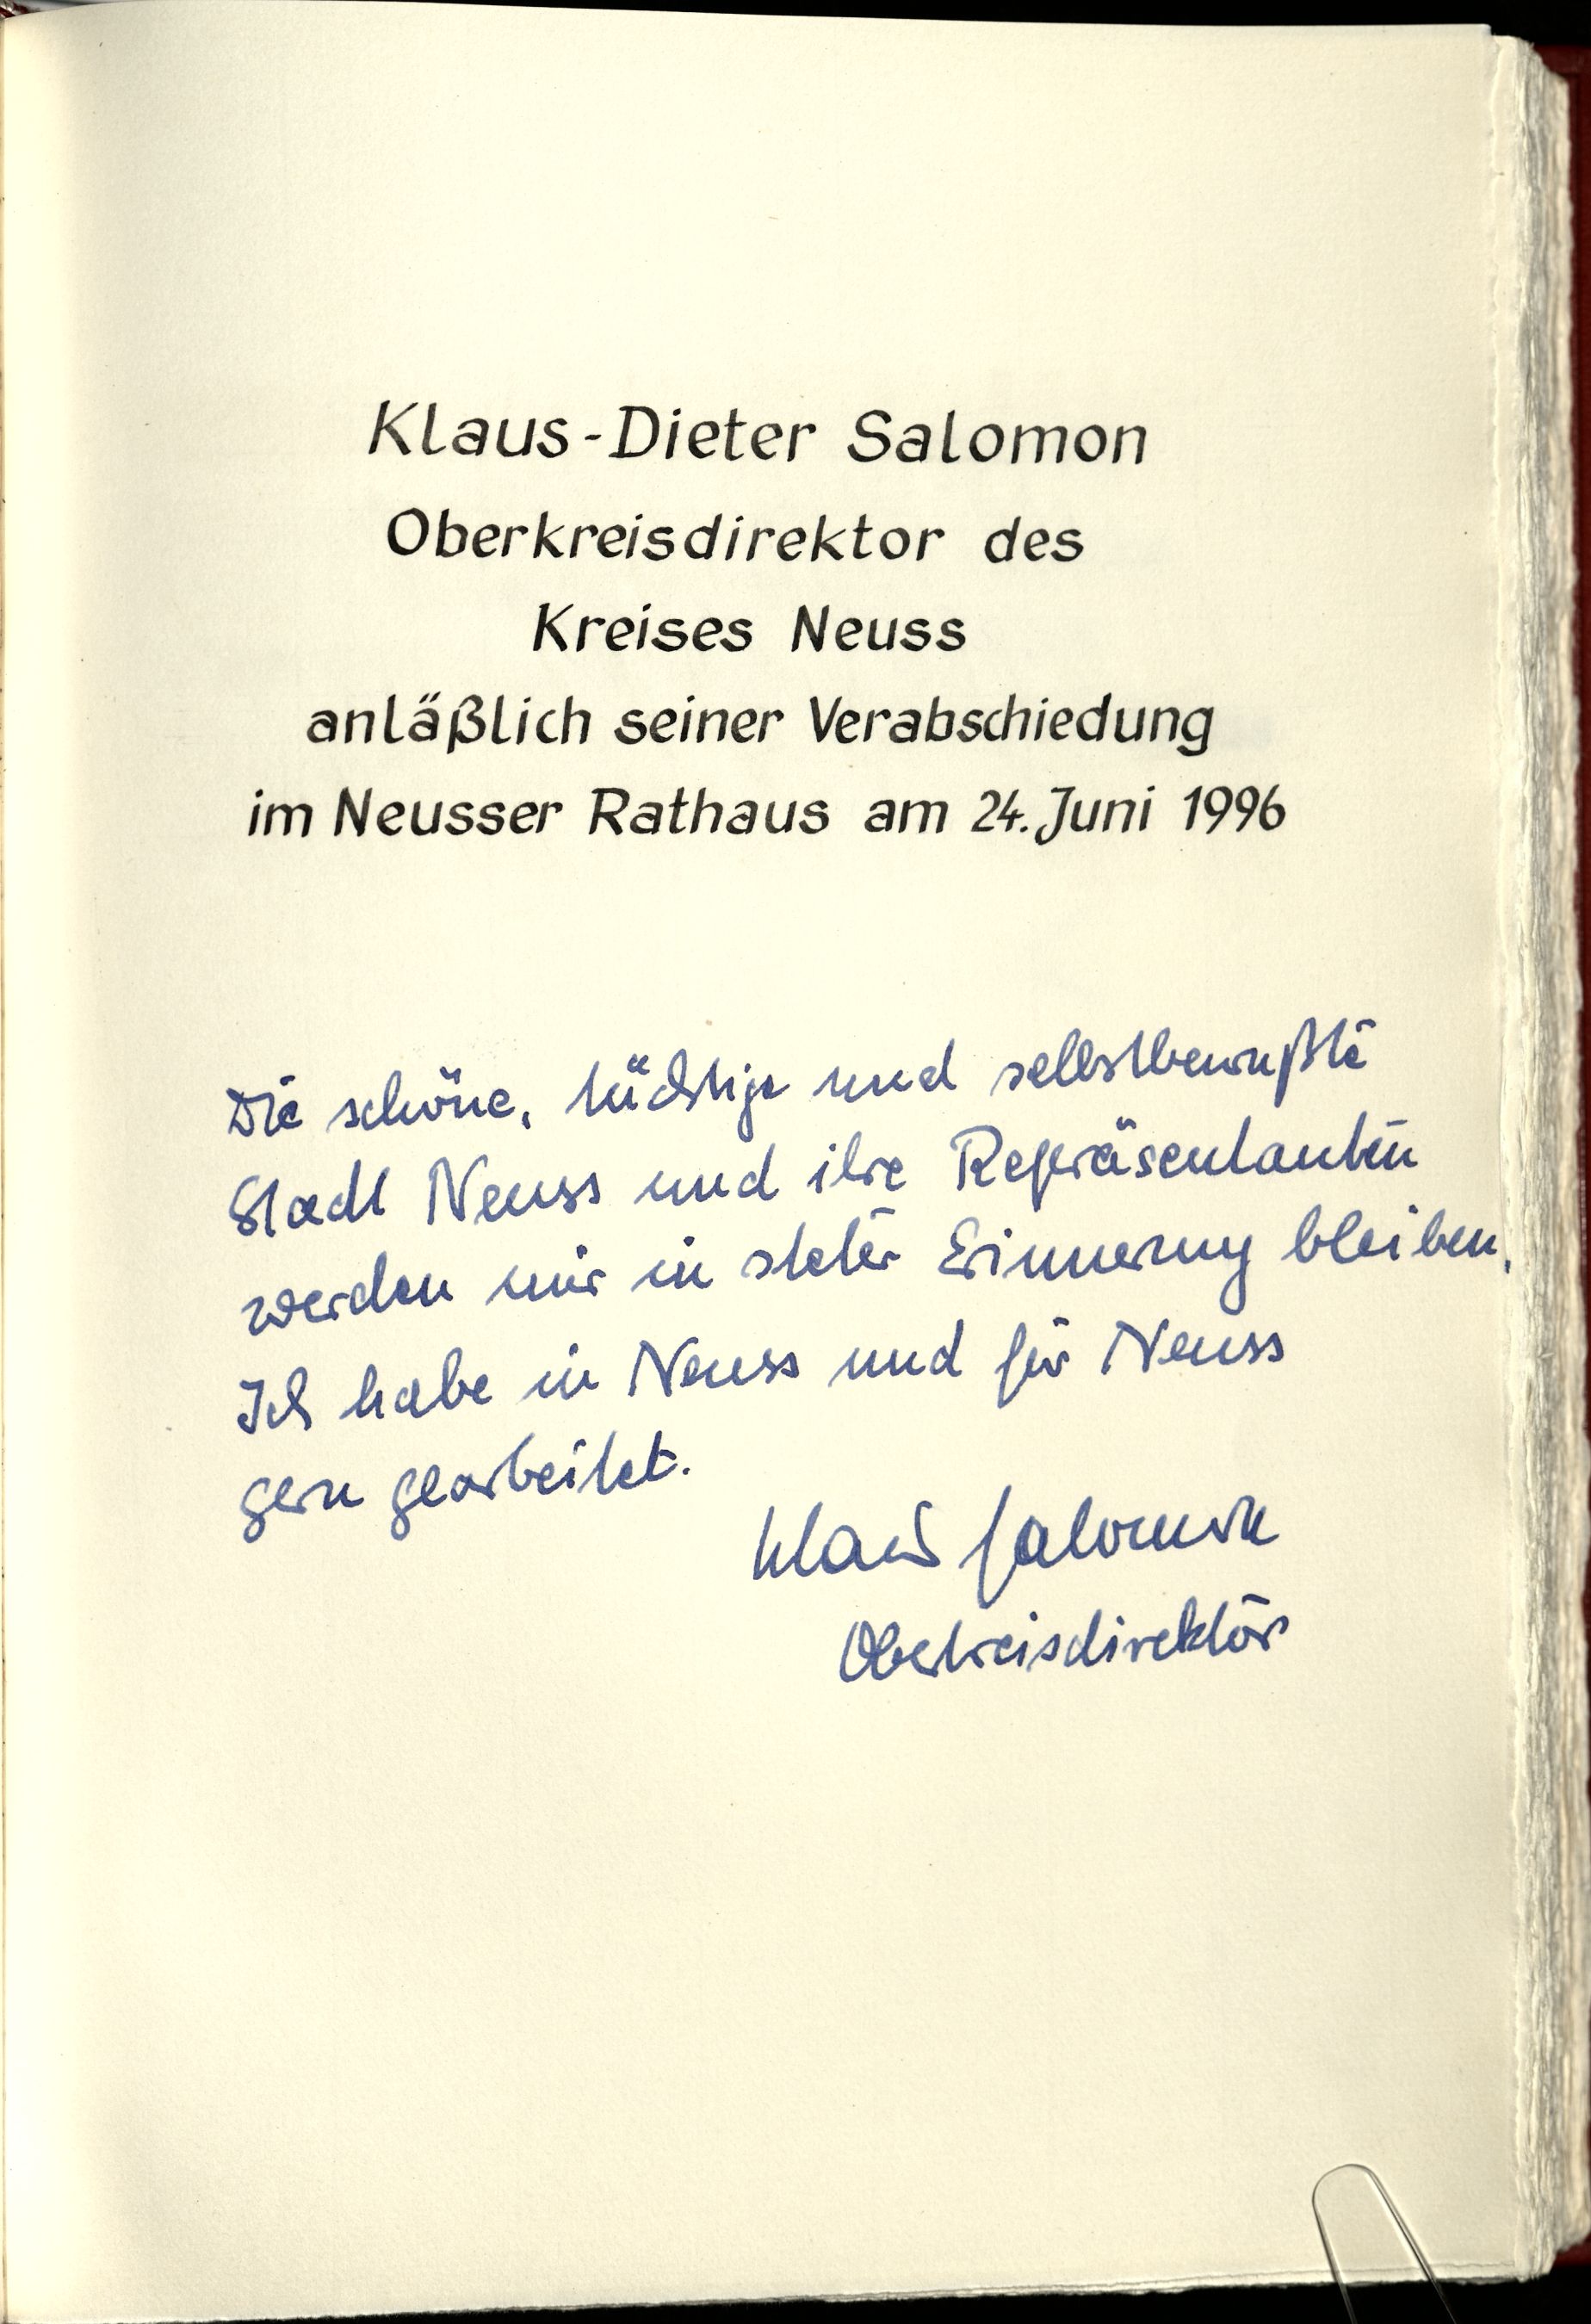 Klaus-Dieter Salomon
Oberkreisdirektor des
Kreises Neuss
anläßlich seiner Verabschiedung
im Neusser Rathaus am 24. Juni 1996
Die schöne, tüchtige und selbstbewußte
Stadt Neuss und ihre Repräsentanten
werden mir in steter Erinnerung bleiben.
Ich habe in Neuss und für Neuss
gern gearbeitet.
Klaus Salomon
Oberkreisdirektor